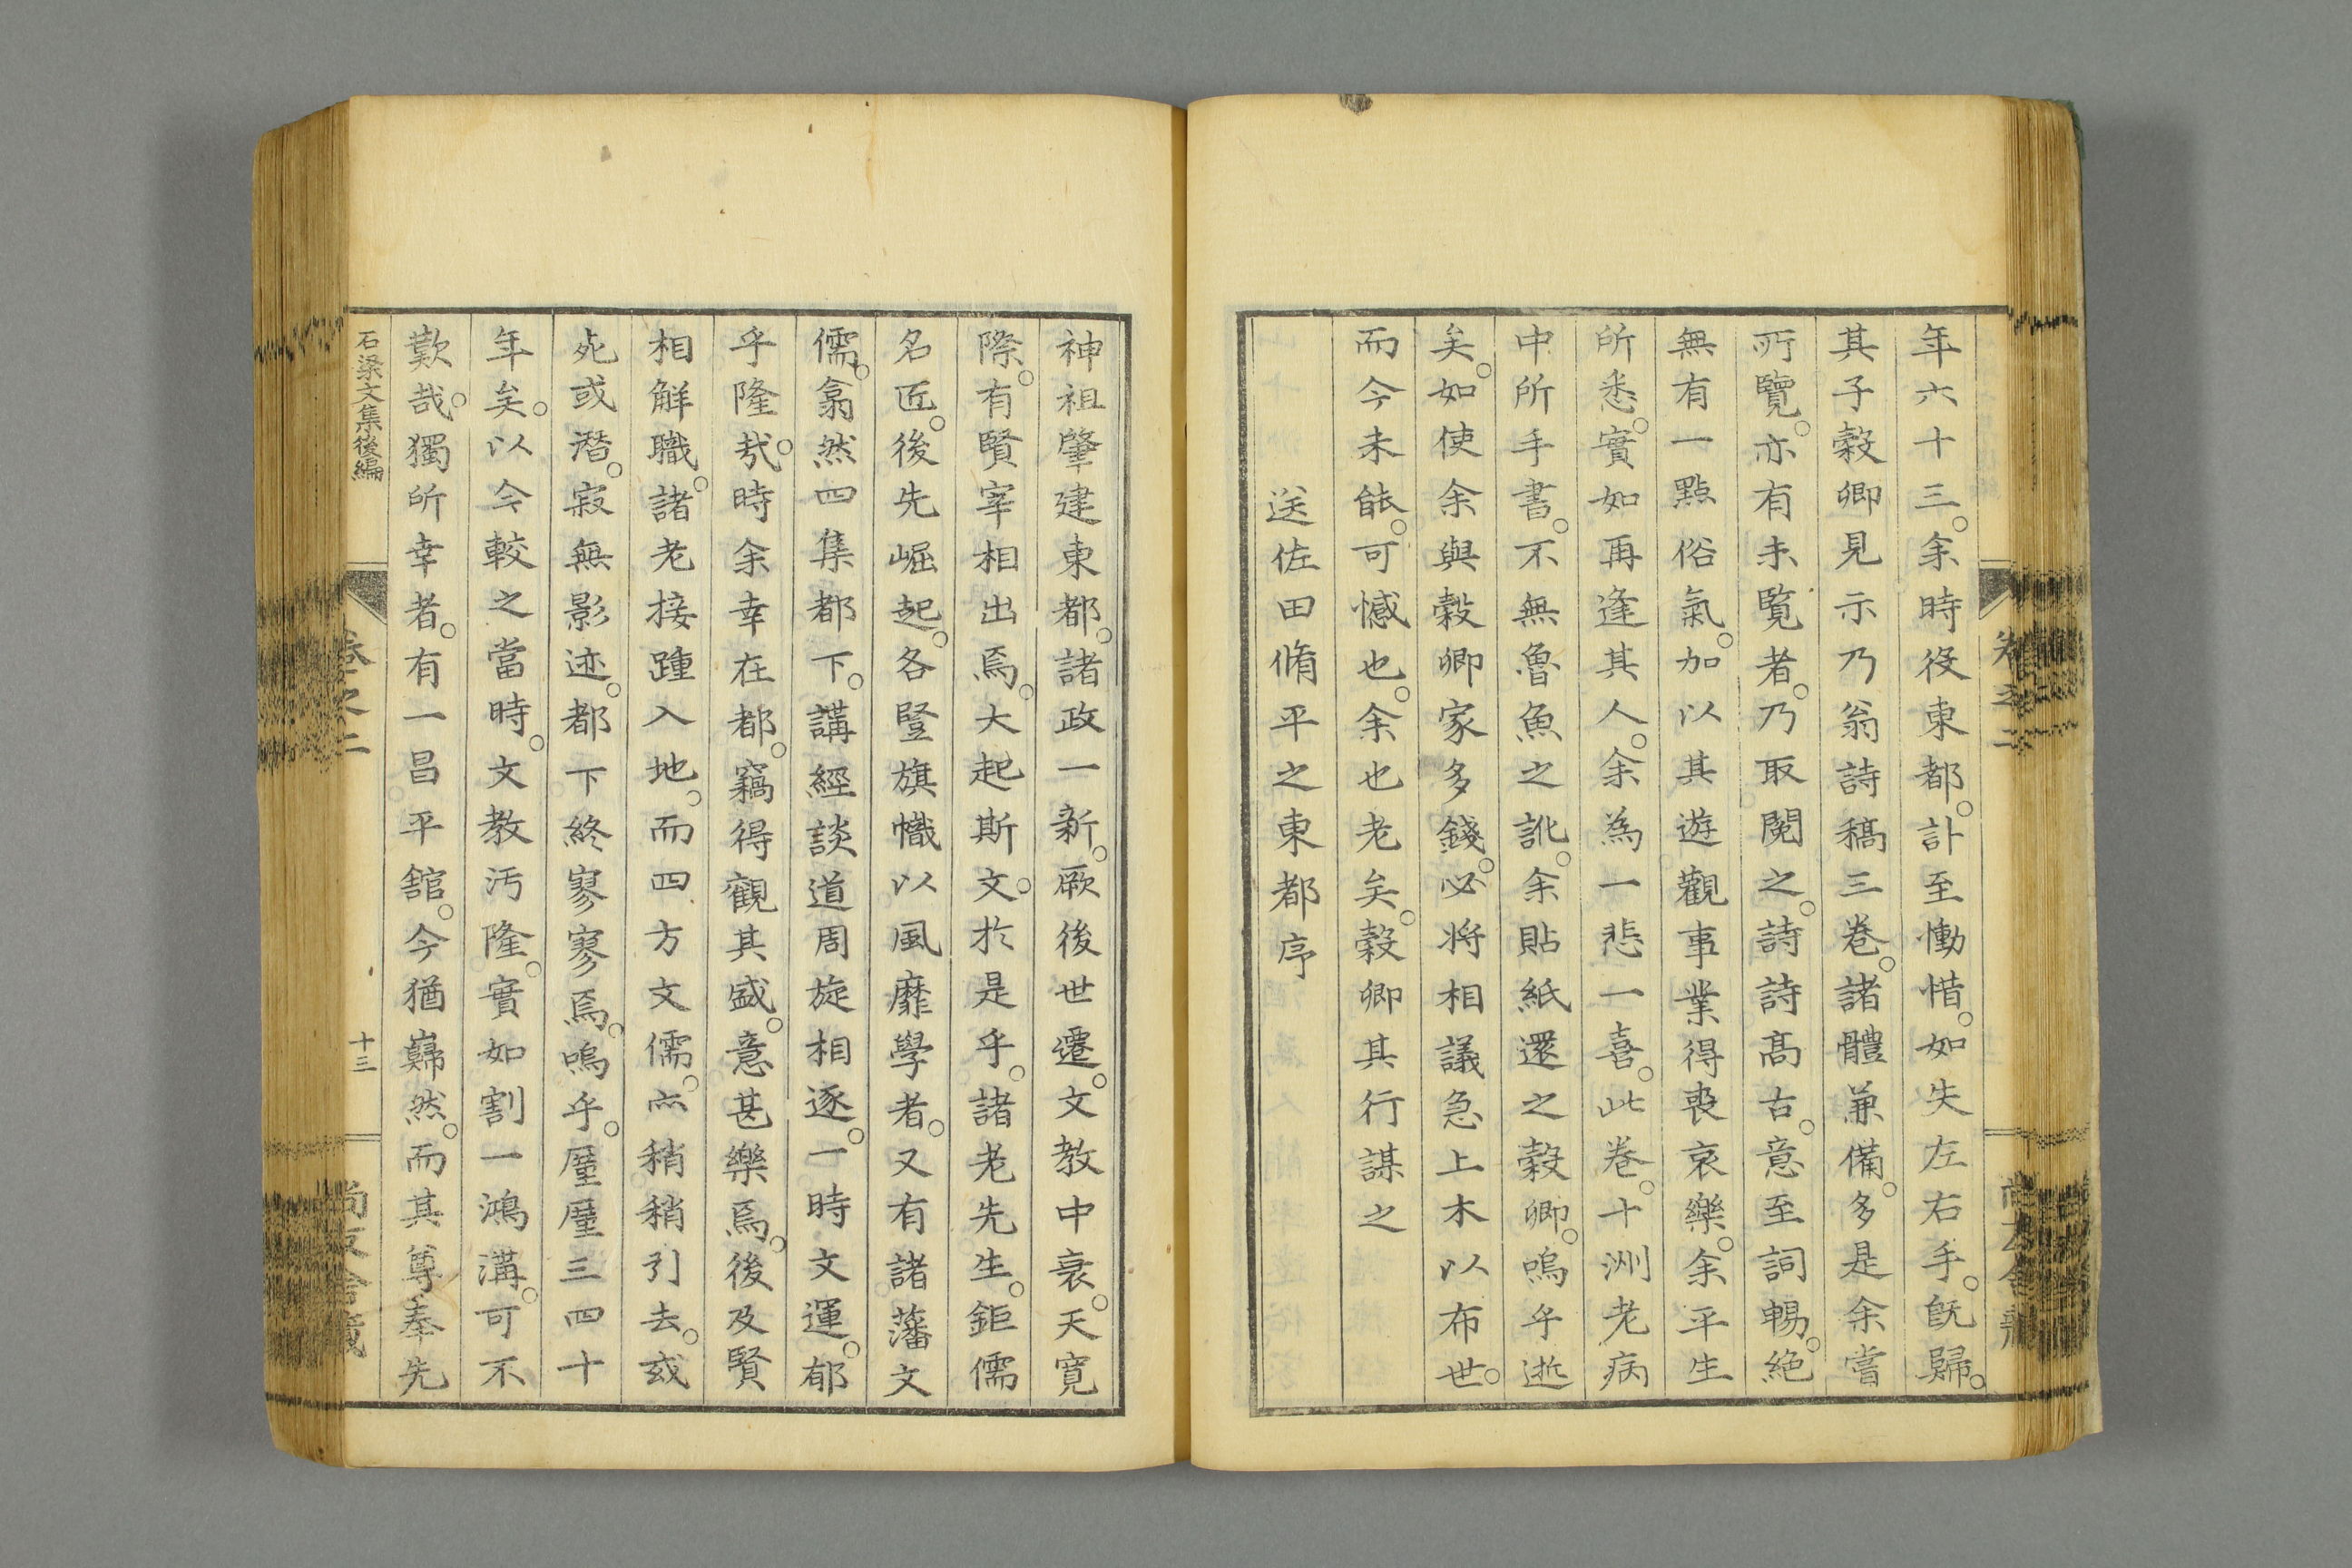 年六十三。余時役東都。訃至慟惜。如失左右手。既歸。
其子穀卿見示乃翁詩稿三卷。諸體兼備。多是余嘗
所覽。亦有未覧者。乃取閱之。詩詩高古。意至詞暢。絶
無有一點俗氣。加以其遊觀事業得喪哀樂。余平生
所悉。實如再逢其人。余為一悲一喜。此卷。十洲老病
中所手書。不無魯魚之訛。余貼紙還之穀卿。嗚乎逝
矣。如使余與穀卿家多錢。必将相議急上木以布世。
而今未能。可憾也。余也老矣。穀卿其行謀之
送佐田脩平之東都序
神祖肇建東都。諸政一新。厥後世遷。文教中衰。天寛
際。有賢宰相出焉。大起斯文。於是乎。諸老先生。鉅儒
名匠。後先崛起。各豎旗幟以風靡學者。又有諸藩文
儒。翕然四集都下。講經談道周旋相逐。一時文運。郁
乎隆哉。時余幸在都。竊得觀其盛。意甚樂焉。後及賢
相解職。諸老接踵入地。而四方文儒。亦稍稍引去。或
死或潛。寂無影迹。都下終寥寥焉。嗚乎。廑廑三四十
年矣。以今較之當時。文教汚隆。實如割一鴻溝。可不
歎哉。獨所幸者。有一昌平舘。今猶巋然。而其尊奉先
石梁文集後編
卷之二
十三
尚友舍藏